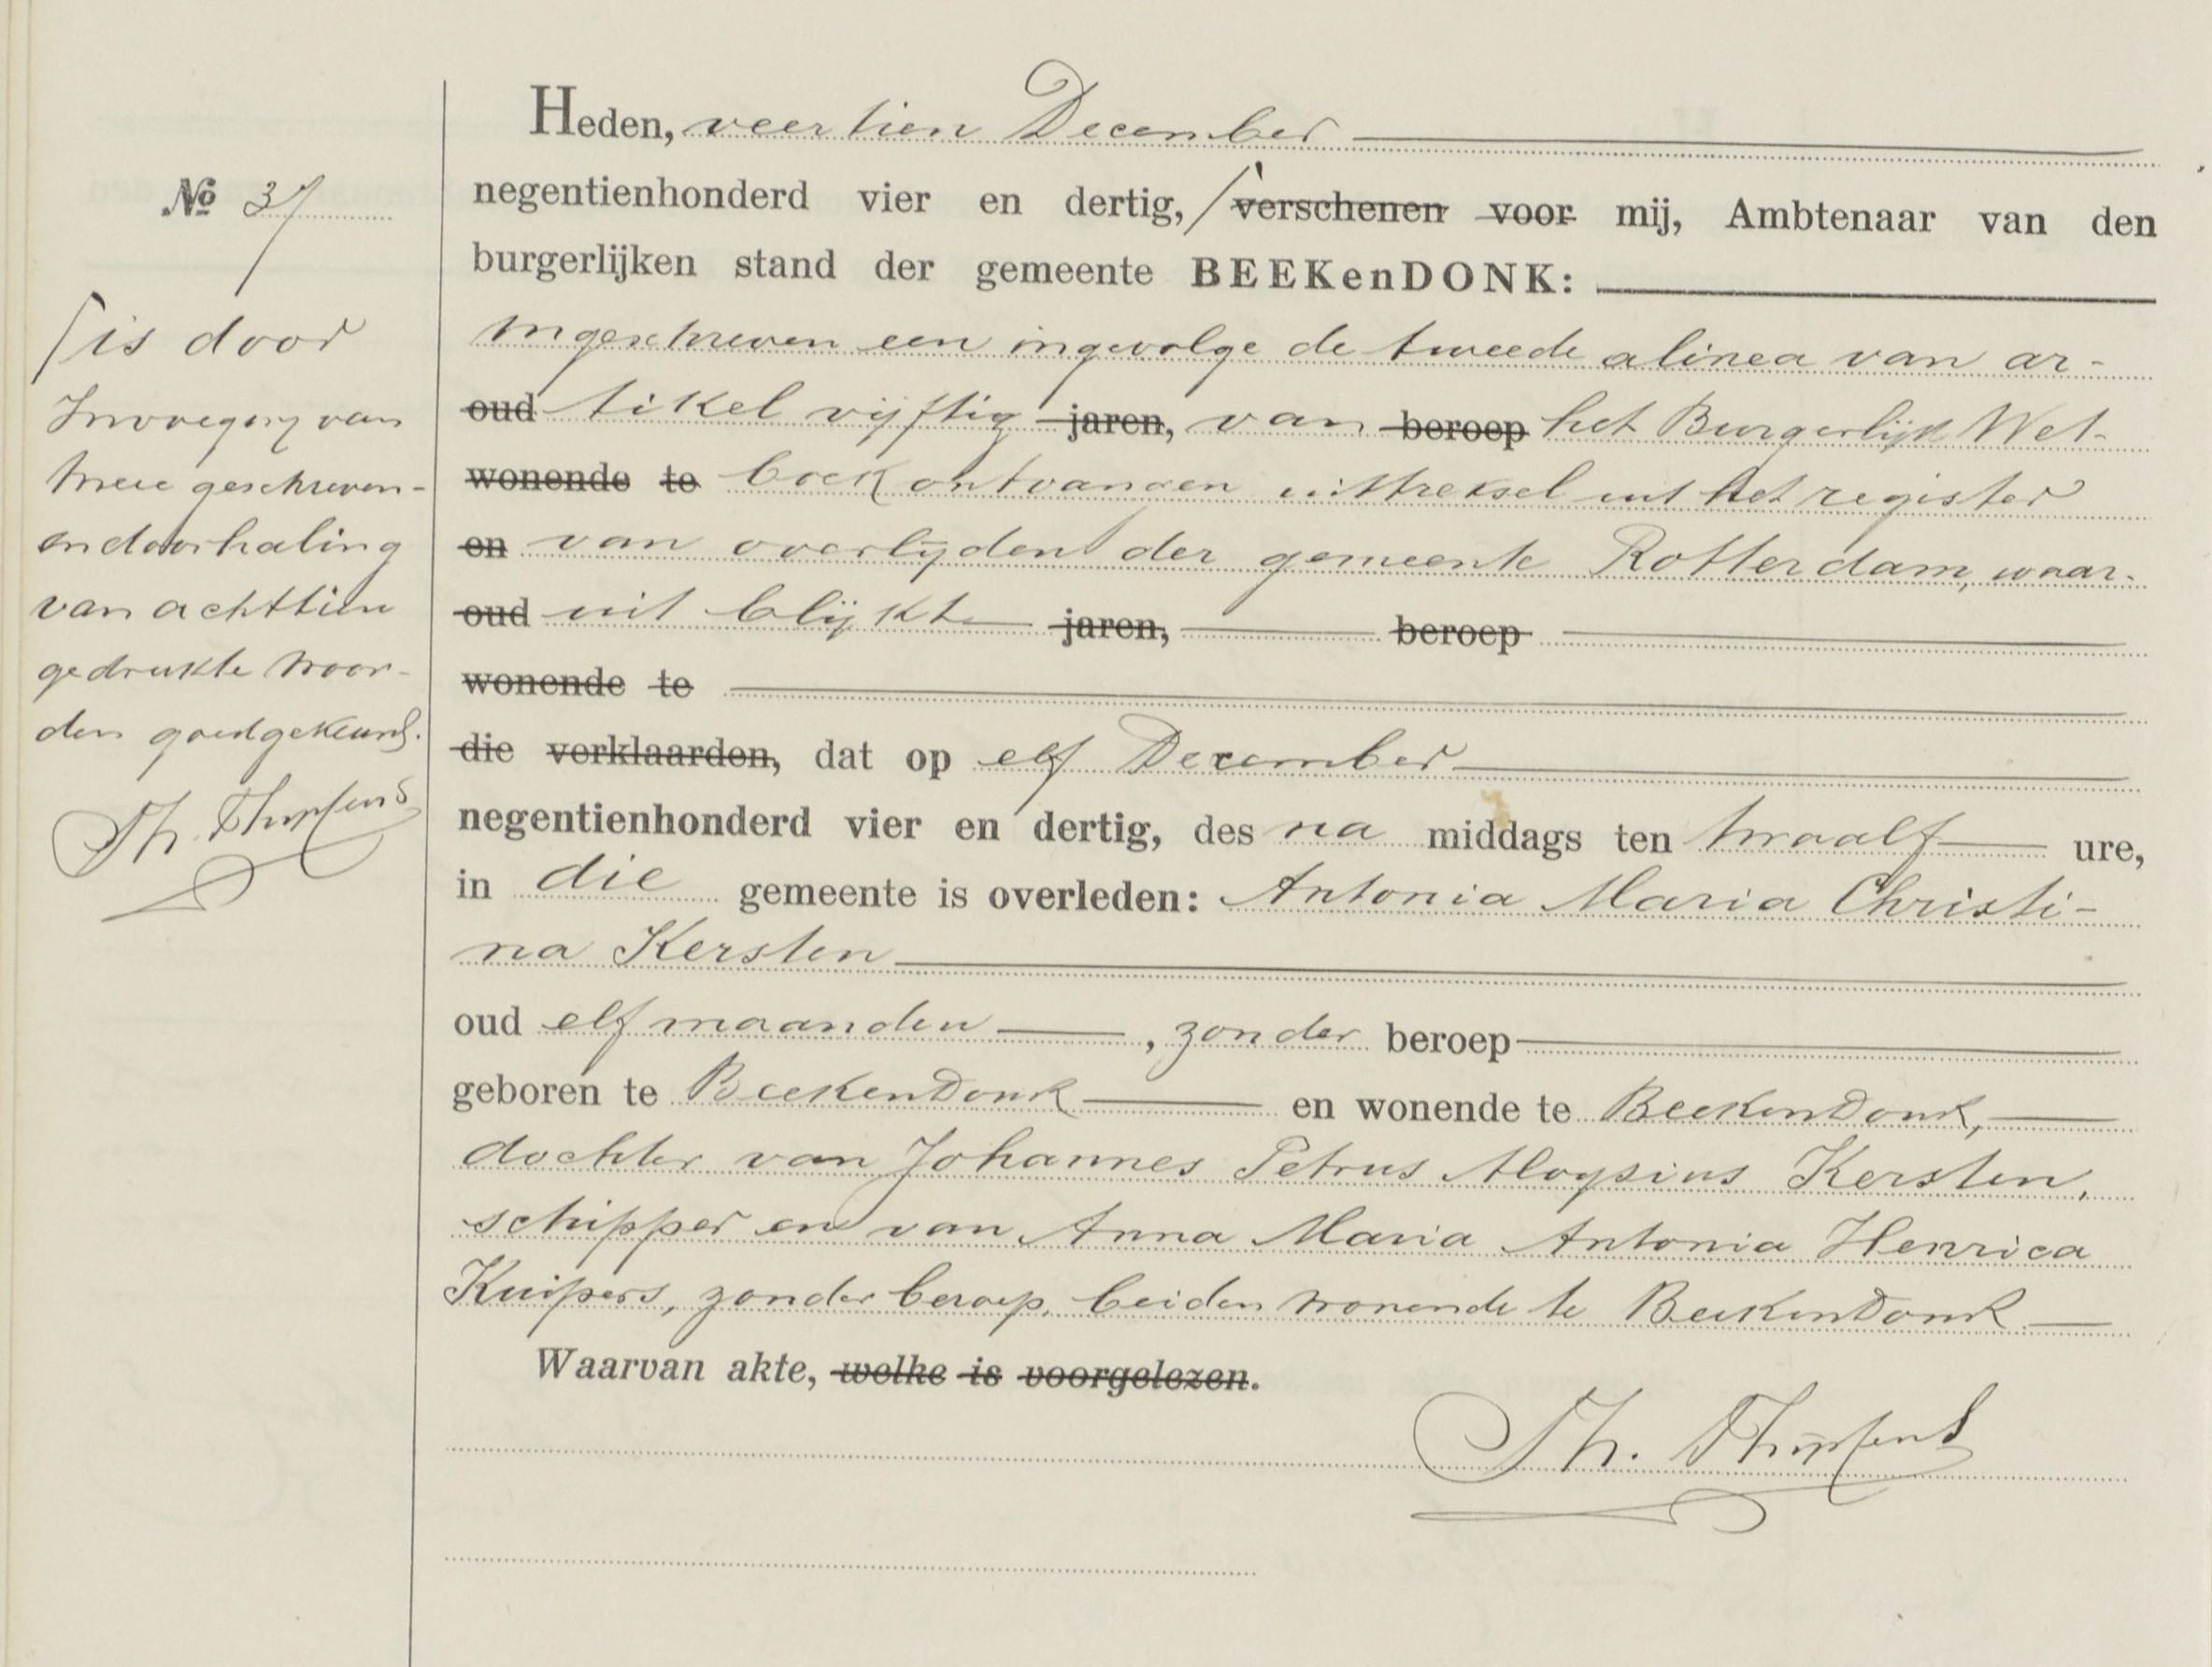 Heden, veertien December
negentienhonderd vier en dertig, / verschenen voor mij, Ambtenaar van den
burgerlijken stand der gemeente BEEKenDONK:
ingeschreven een ingevolge de tweede alinea van ar-
oud tikel vijftig jaren, van beroep het Burgerlijk Wet-
wonende te boek ontvangen uittreksel uit het register
en van overlijden der gemeente Rotterdam, waar-
oud uit blijkt jaren, beroep
wonende te
die verklaarden, dat op elf December
negentienhonderd vier en dertig, des na middags ten twaalf ure,
in die gemeente is overleden: Antonia Maria Christi-
na Kersten
oud elf maanden, zonder beroep
geboren te BeekenDonk en wonende te BeekenDonk,
dochter van Johannes Petrus Aloysius Kersten,
schipper en van Anna Maria Antonia Henrica
Kuipers, zonder beroep, beiden wonende te BeekenDonk
Waarvan akte, welke is voorgelezen.
Th. Thijssens
No 37
/ is door
Invoeging van
twee geschreven-
en doorhaling
van achttien
gedrukte woor-
den goedgekeurd.
Th. Thijssens